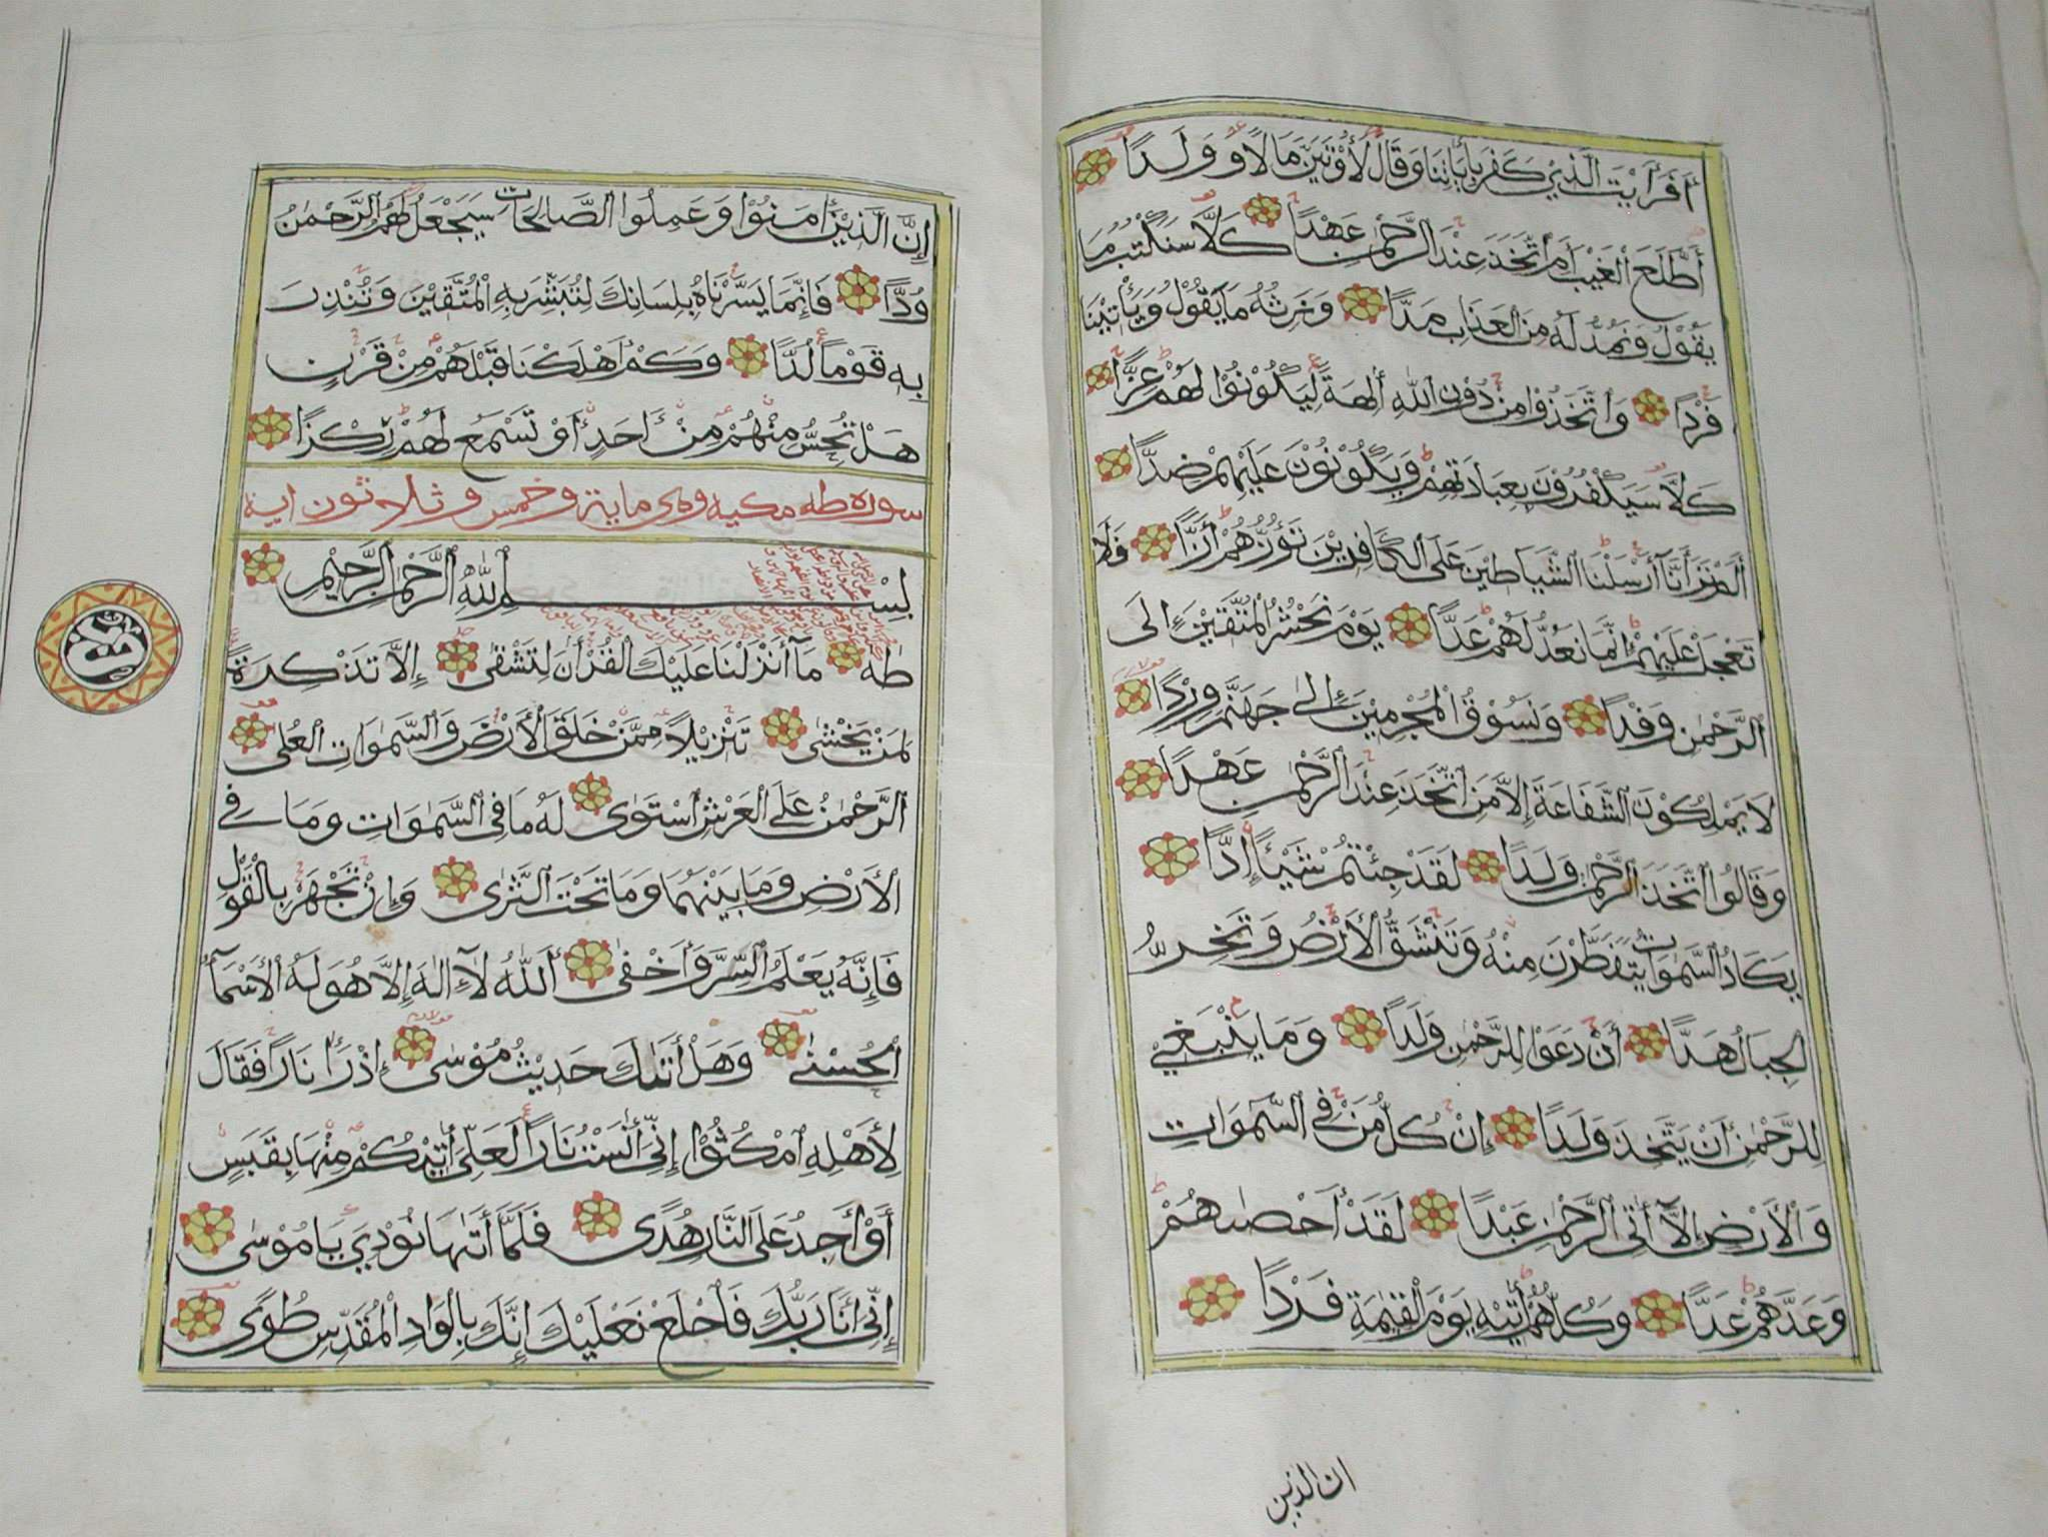 أَفَرَأَيْتَ الَّذِيْ كَفَرَ بِأٰيَاتِنَا وَقَالَ لَأُوْتَيَنَّ مَالًا وَوَلَدًا
أَطَّلَعَ الْغَيْبَ أَمِ اتَّخَذَ عِنْدَ الرَّحْمٰنِ عَهْدًا كَلَّا سَنَكْتُبُ مَا
يَقُوْلُ وَنَمُدُّ لَهُ مِنَ الْعَذَابِ مَدًّا وَنَرِثُهُ مَا يَقُوْلُ وَيَأْتِيْنَا
فَرْدًا وَاتَّخَذُوْا مِنْ دُوْنِ اللهِ أٰلِهَةً لِيَكُوْنُوْا لَهُمْ عِزًّا
كَلَّا سَيَكْفُرُوْنَ بِعِبَادَتِهِمْ وَيَكُوْنُوْنَ عَلَيْهِمْ ضِدًّا
أَلَمْ تَرَ أَنَّا أَرْسَلْنَا الشَّيَاطِيْنَ عَلَى الْكَافِرِيْنَ تَؤُزُّهُمْ أَزًّا فَلَا
تَعْجَلْ عَلَيْهِمْ إِنَّمَا نَعُدُّ لَهُمْ عَدًّا يَوْمَ نَحْشُرُ الْمُتَّقِيْنَ إِلَى
الرَّحْمٰنِ وَفْدًا وَنَسُوْقُ الْمُجْرِمِيْنَ إِلىٰ جَهَنَّمَ وِرْدًا
لَا يَمْلِكُوْنَ الشَّفَاعَةَ إِلَّا مَنِ اتَّخَذَ عِنْدَ الرَّحْمٰنِ عَهْدًا
وَقَالُوا اتَّخَذَ الرَّحْمٰنُ وَلَدًا لَقَدْ جِئْتُمْ شَيْئًا إِدًّا
يَكَادُ السَّمٰوَاتُ يَتَفَطَّرْنَ مِنْهُ وَتَنْشَقُّ الْأَرْضُ وَتَخِرُّ
الْجِبَالُ هَدًّا أَنْ دَعَوْا لِلرَّحْمٰنِ وَلَدًا وَمَا يَنْبَغِيْ
لِلرَّحْمٰنِ أَنْ يَتَّخِذَ وَلَدًا إِنْ كُلُّ مَنْ فِي السَّمٰوَاتِ
وَالْأَرْضِ إِلَّا أٰتِي الرَّحْمٰنِ عَبْدًا لَقَدْ أَحْصٰىهُمْ
وَعَدَّهُمْ عَدًّا وَكُلُّهُمْ أٰتِيْهِ يَوْمَ الْقِيٰمَةِ فَرْدًا
ان الذين
إِنَّ الَّذِيْنَ أٰمَنُوْا وَعَمِلُوا الصَّالِحَاتِ سَيَجْعَلُ لَهُمُ الرَّحْمٰنُ
وُدًّا فَإِنَّمَا يَسَّرْنَاهُ بِلِسَانِكَ لِتُبَشِّرَ بِهِ الْمُتَّقِيْنَ وَتُنْذِرَ
بِهِ قَوْمًا لُدًّا وَكَمْ أَهْلَكْنَا قَبْلَهُمْ مِنْ قَرْنٍ
هَلْ تُحِسُّ مِنْهُمْ مِنْ أَحَدٍ أَوْ تَسْمَعُ لَهُمْ رِكْزًا
سورة طه مكية وهي ماية وخمس وثلاثون اية
بِسْمِ اللهِ الرَّحْمٰنِ الرَّحِيْمِ
طٰهٰ مَا أَنْزَلْنَا عَلَيْكَ الْقُرْأٰنَ لِتَشْقٰى إِلَّا تَذْكِرَةً
لِمَنْ يَخْشٰى تَنْزِيْلًا مِمَّنْ خَلَقَ الْأَرْضَ وَالسَّمٰوَاتِ الْعُلٰى
الرَّحْمٰنُ عَلَى الْعَرْشِ اسْتَوٰى لَهُ مَا فِي السَّمٰوَاتِ وَمَا فِي
الْأَرْضِ وَمَا بَيْنَهُمَا وَمَا تَحْتَ الثَّرٰى وَإِنْ تَجْهَرْ بِالْقَوْلِ
فَإِنَّهُ يَعْلَمُ السِّرَّ وَأَخْفٰى أَللهُ لَا إِلٰهَ إِلَّا هُوَ لَهُ الْأَسْمَاءُ
الْحُسْنٰى وَهَلْ أَتٰىكَ حَدِيْثُ مُوْسٰى إِذْ رَأٰ نَارًا فَقَالَ
لِأَهْلِهِ امْكُثُوْا إِنِّي أٰنَسْتُ نَارًا لَعَلِّي أٰتِيْكُمْ مِنْهَا بِقَبَسٍ
أَوْ أَجِدُ عَلَى النَّارِ هُدًى فَلَمَّا أَتٰىهَا نُوْدِيَ يَا مُوْسٰى
إِنِّي أَنَا رَبُّكَ فَاخْلَعْ نَعْلَيْكَ إِنَّكَ بِالْوَادِ الْمُقَدَّسِ طُوًى